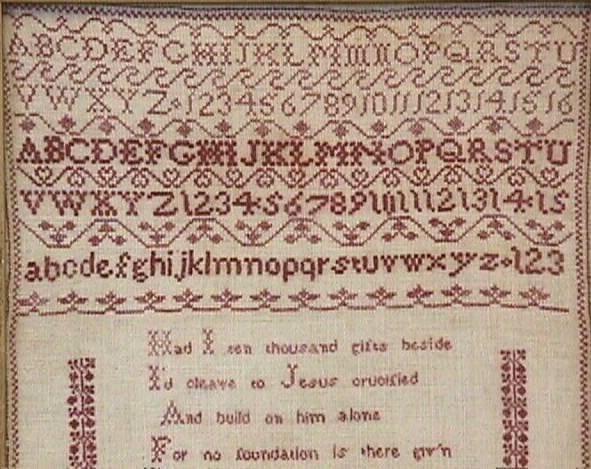 ABCDEFGHIJKLMNOPQRSTU
VWXYZ·12345678910111213141516
ABCDEFGHIJKLMNOPQRSTU
VWXYZ123456789101112131415
abcdefghijklmnopqrstuvwxyz·123
Had I ten thousand gifts beside
I'd cleave to Jesus crucified
And build on him alone
For no foundation is there giv'n